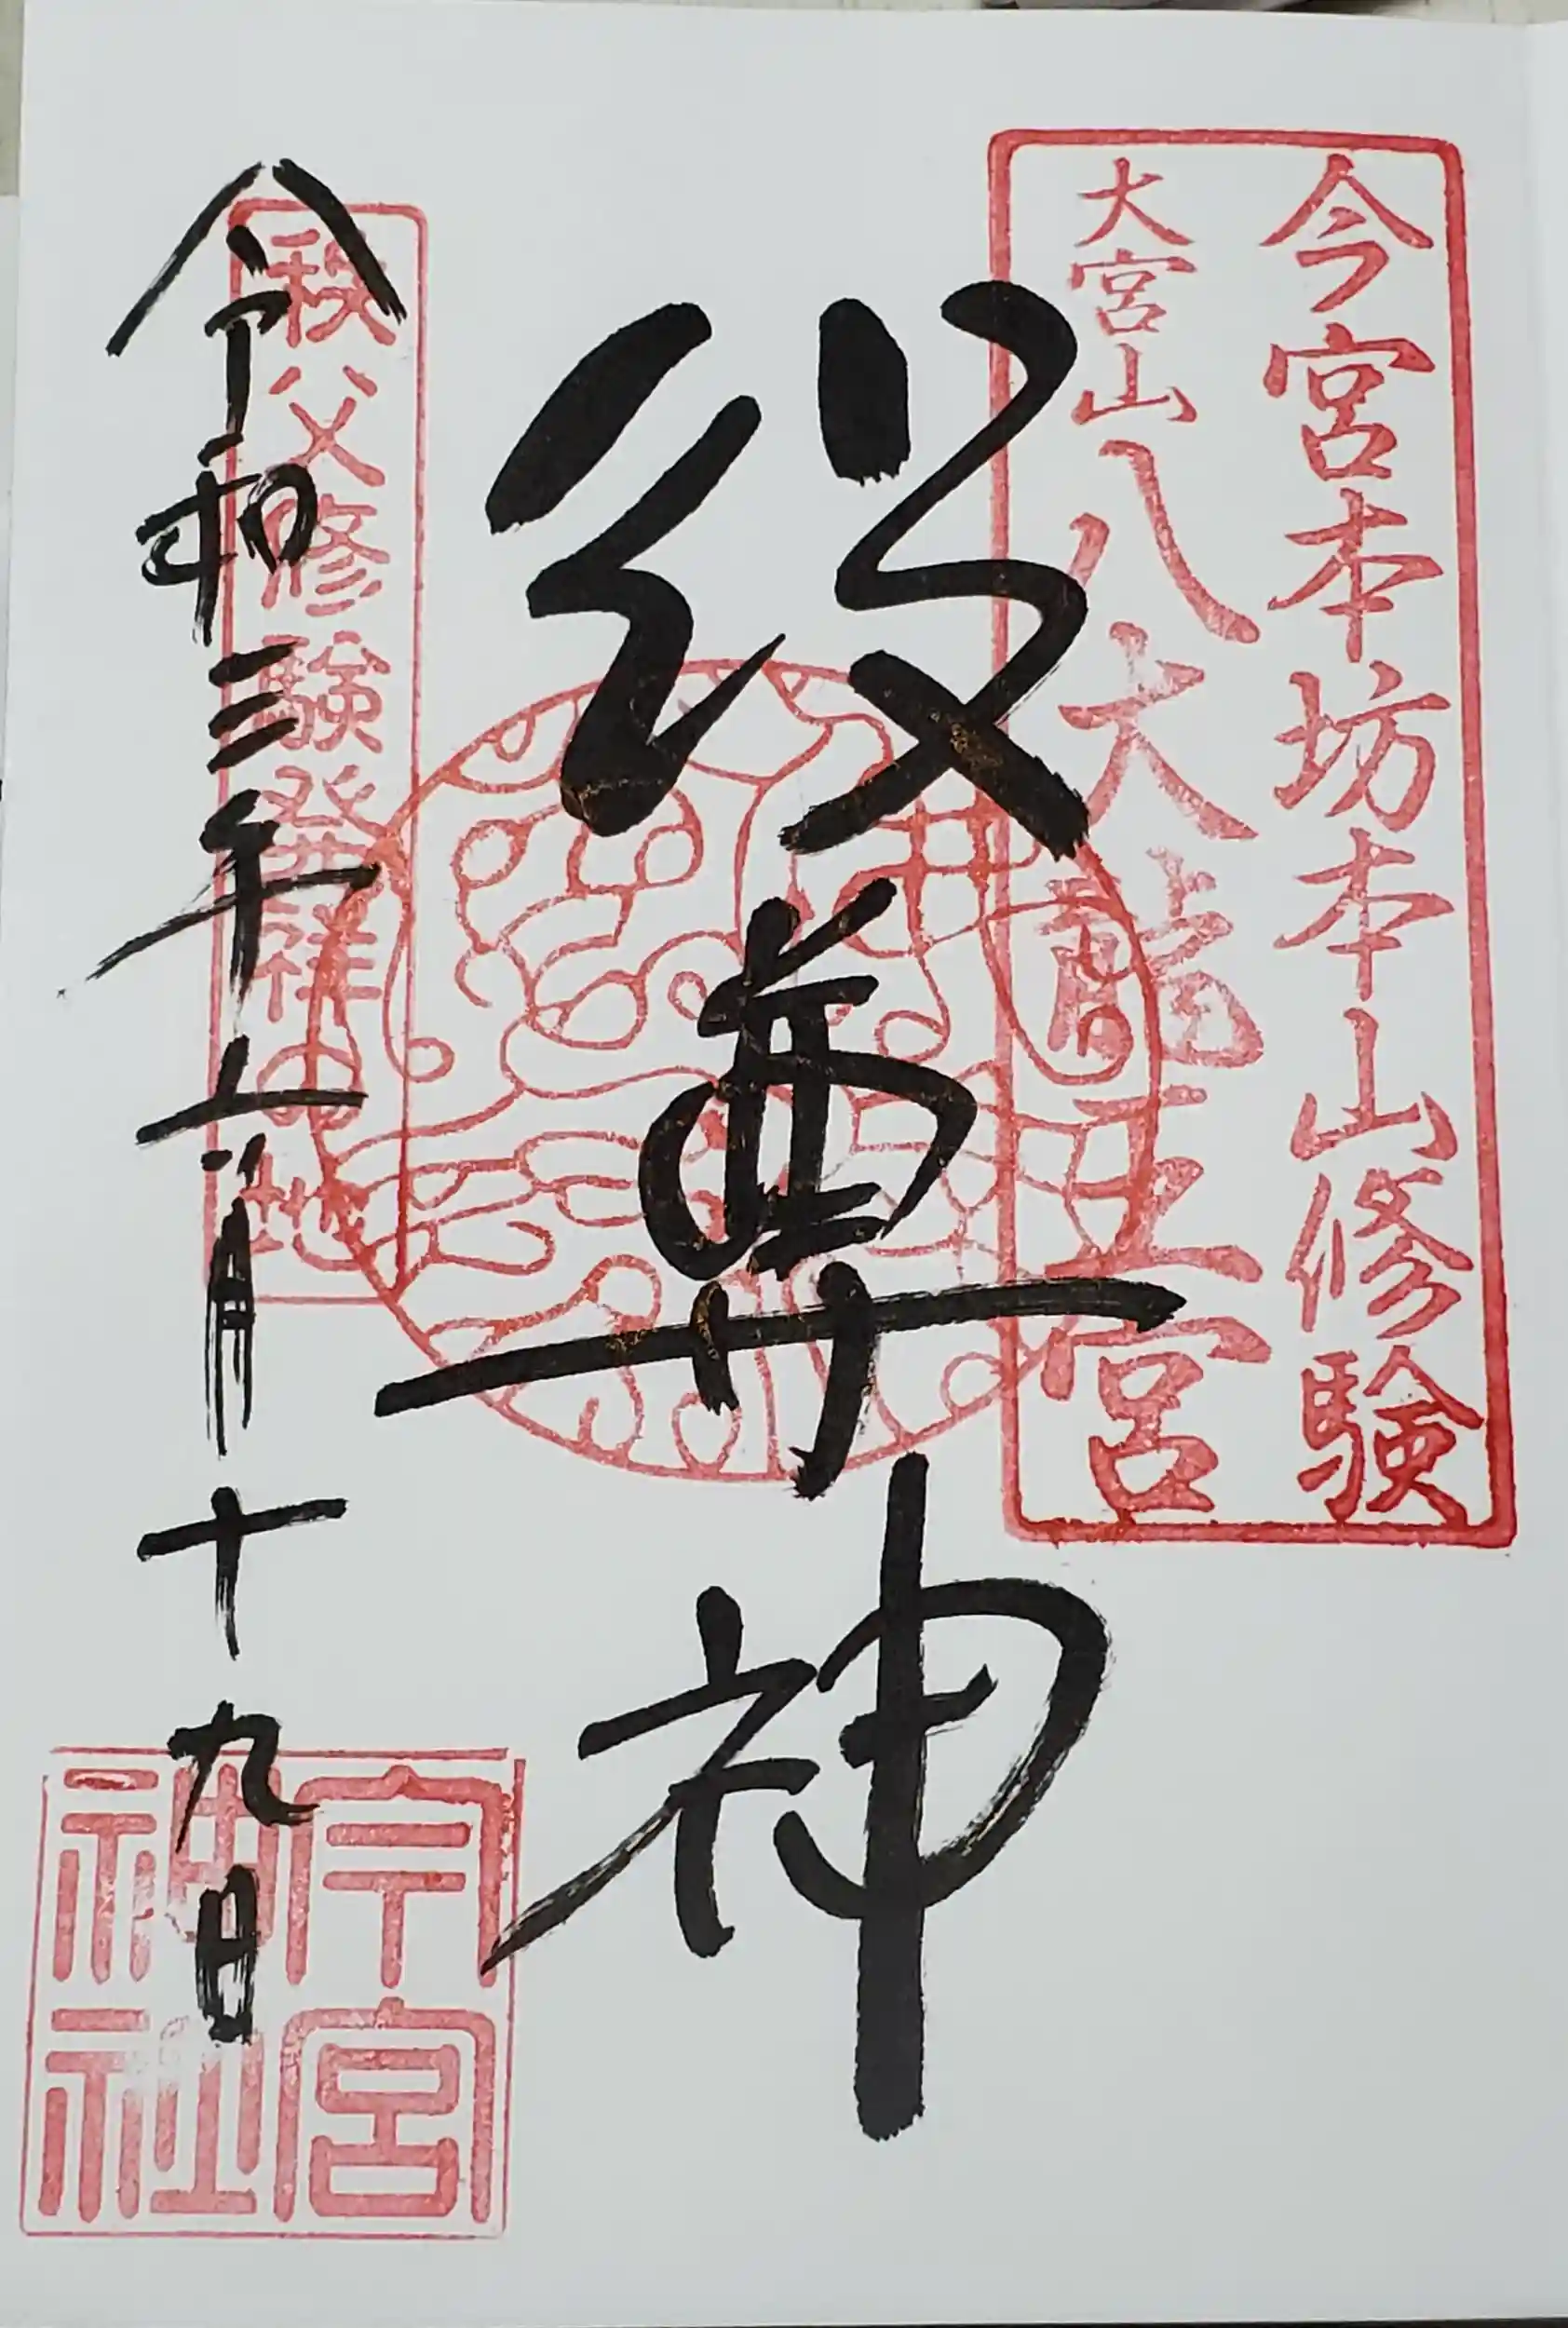 今宮本坊本山修験
大宮山八大龍王宮
役尊神
秩父修験発祥の地
令和三年六月十九日
今宮
神社